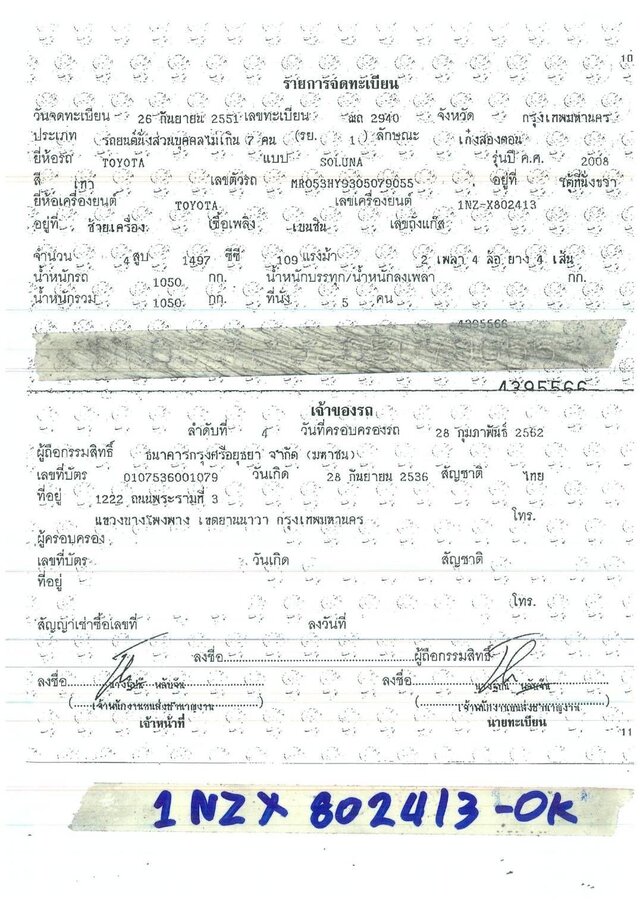 10
รายการจดทะเบียน
วันจดทะเบียน 26 กันยายน 2551 เลขทะเบียน ฌถ 2940 จังหวัด กรุงเทพมหานคร
ประเภท รถยนต์นั่งส่วนบุคคลไม่เกิน 7 คน (รย. 1 ) ลักษณะ เก๋งสองตอน
ยี่ห้อรถ TOYOTA แบบ SOLUNA รุ่นปี ค.ศ. 2008
สี เทา เลขตัวรถ MR053HY9305079055 อยู่ที่ ใต้ที่นั่งขวา
ยี่ห้อเครื่องยนต์ TOYOTA เลขเครื่องยนต์ 1NZ-X802413
อยู่ที่ ซ้ายเครื่อง เชื้อเพลิง เบนซิน เลขถังแก๊ส
จำนวน 4 สูบ 1497 ซีซี 109 แรงม้า 2 เพลา 4 ล้อ ยาง 4 เส้น
น้ำหนักรถ 1050 กก. น้ำหนักบรรทุก/น้ำหนักลงเพลา กก.
น้ำหนักรวม 1050 กก. ที่นั่ง 5 คน
4395566
4395566
เจ้าของรถ
ลำดับที่ 4 วันที่ครอบครองรถ 28 กุมภาพันธ์ 2562
ผู้ถือกรรมสิทธิ์ ธนาคารกรุงศรีอยุธยา จำกัด (มหาชน)
เลขที่บัตร 0107536001079 วันเกิด 28 กันยายน 2536 สัญชาติ ไทย
ที่อยู่ 1222 ถนนพระรามที่ 3
แขวงบางโพงพาง เขตยานนาวา กรุงเทพมหานคร โทร.
ผู้ครอบครอง
เลขที่บัตร วันเกิด สัญชาติ
ที่อยู่
โทร.
สัญญาเช่าซื้อเลขที่ ลงวันที่
ลงชื่อ ผู้ถือกรรมสิทธิ์
ลงชื่อ ลงชื่อ
(เจ้าพนักงานขนส่งชำนาญงาน) (เจ้าพนักงานขนส่งชำนาญงาน)
เจ้าหน้าที่ นายทะเบียน
11
1NZX 802413-OK